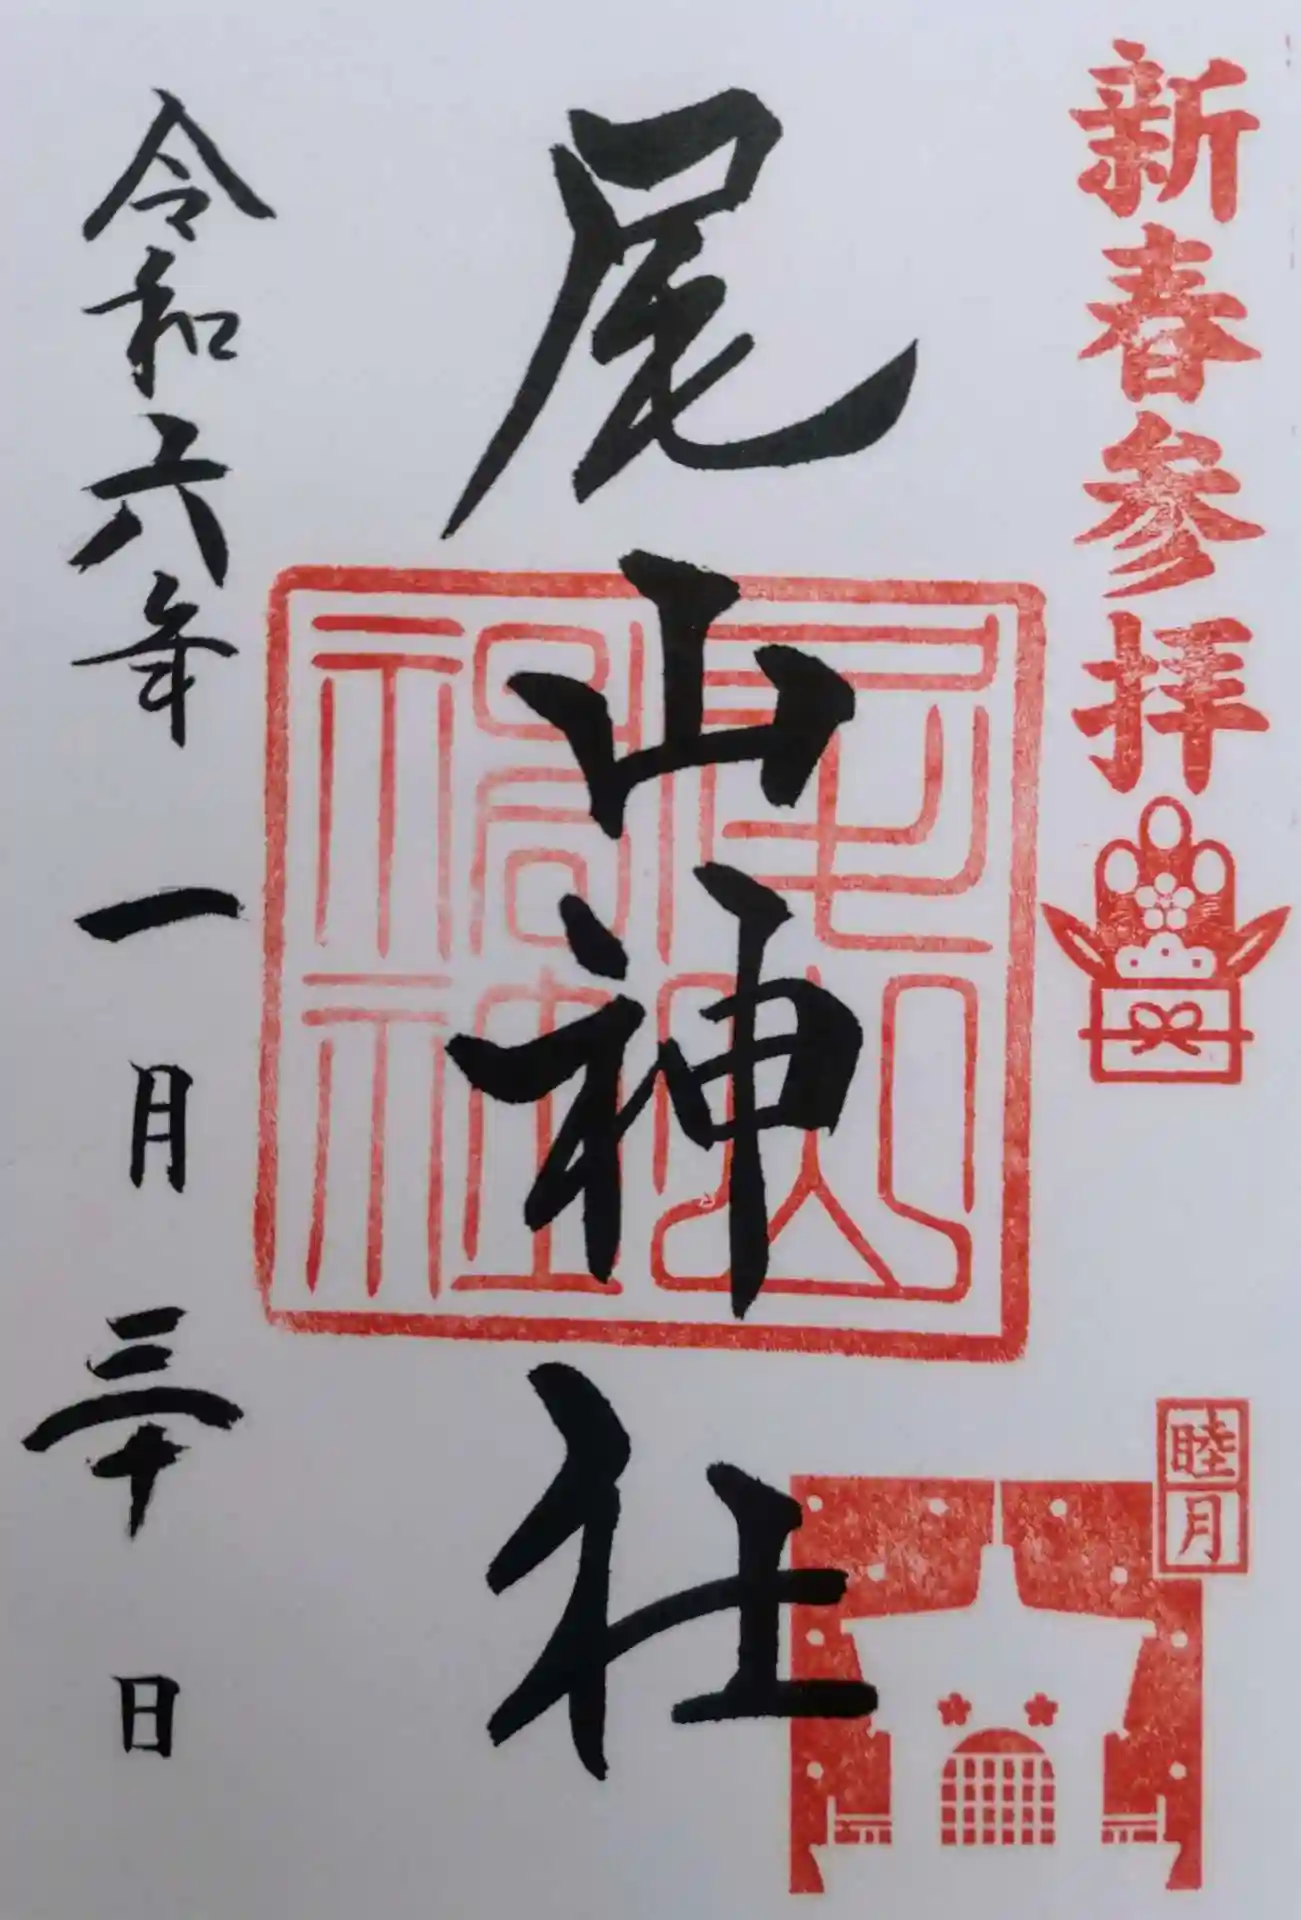 新春参拝
尾山神社
尾山神社
睦月
令和六年 一月 三十日